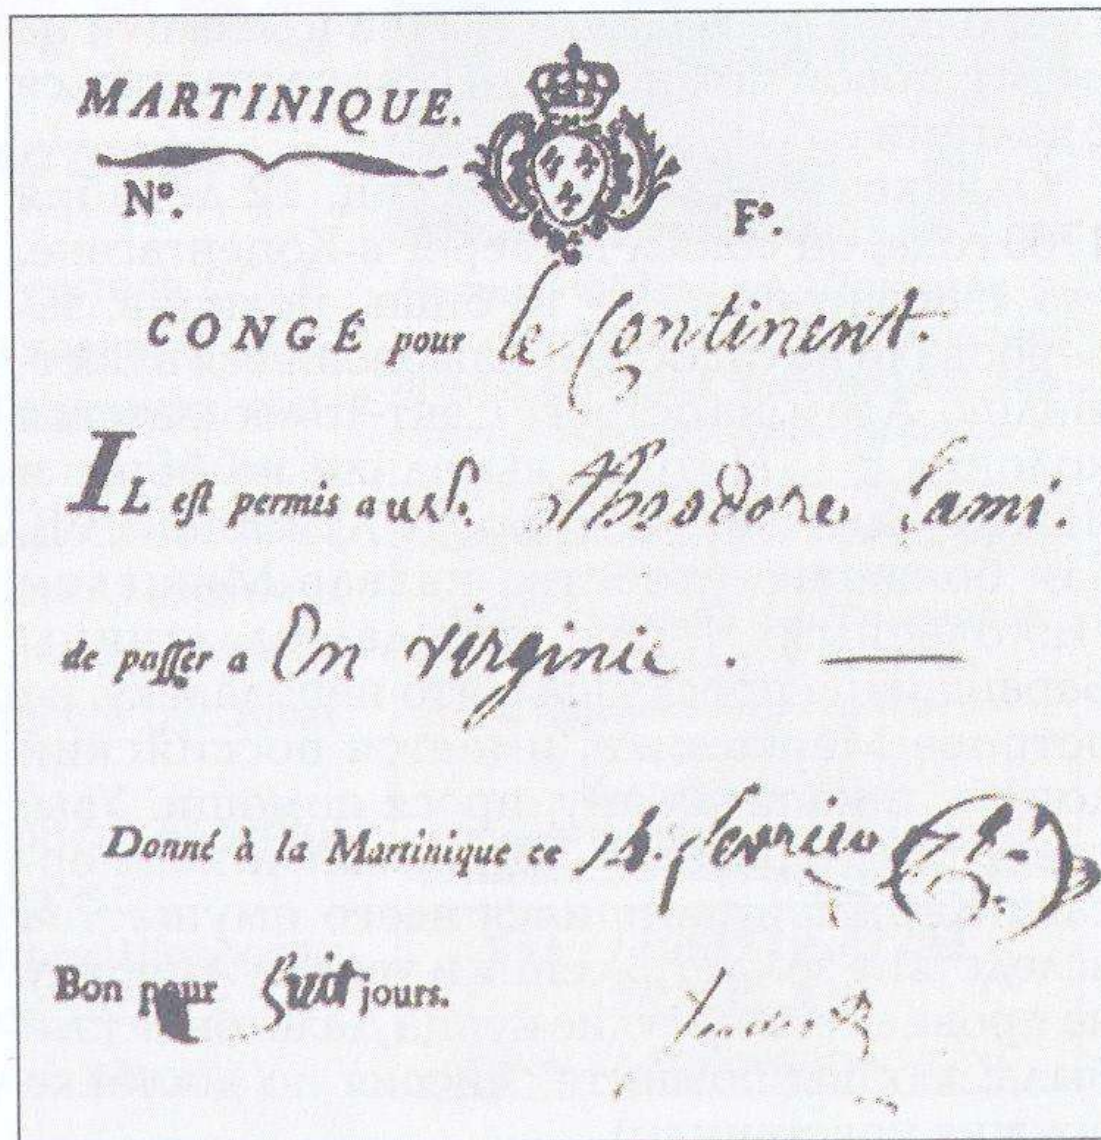 MARTINIQUE.
Nº. Fº.
CONGÉ pour le Continent.
IL est permis au Sr. Théodore Lami.
de passer a En virginie. —
Donné à la Martinique ce fevrier
Bon pour huit jours.